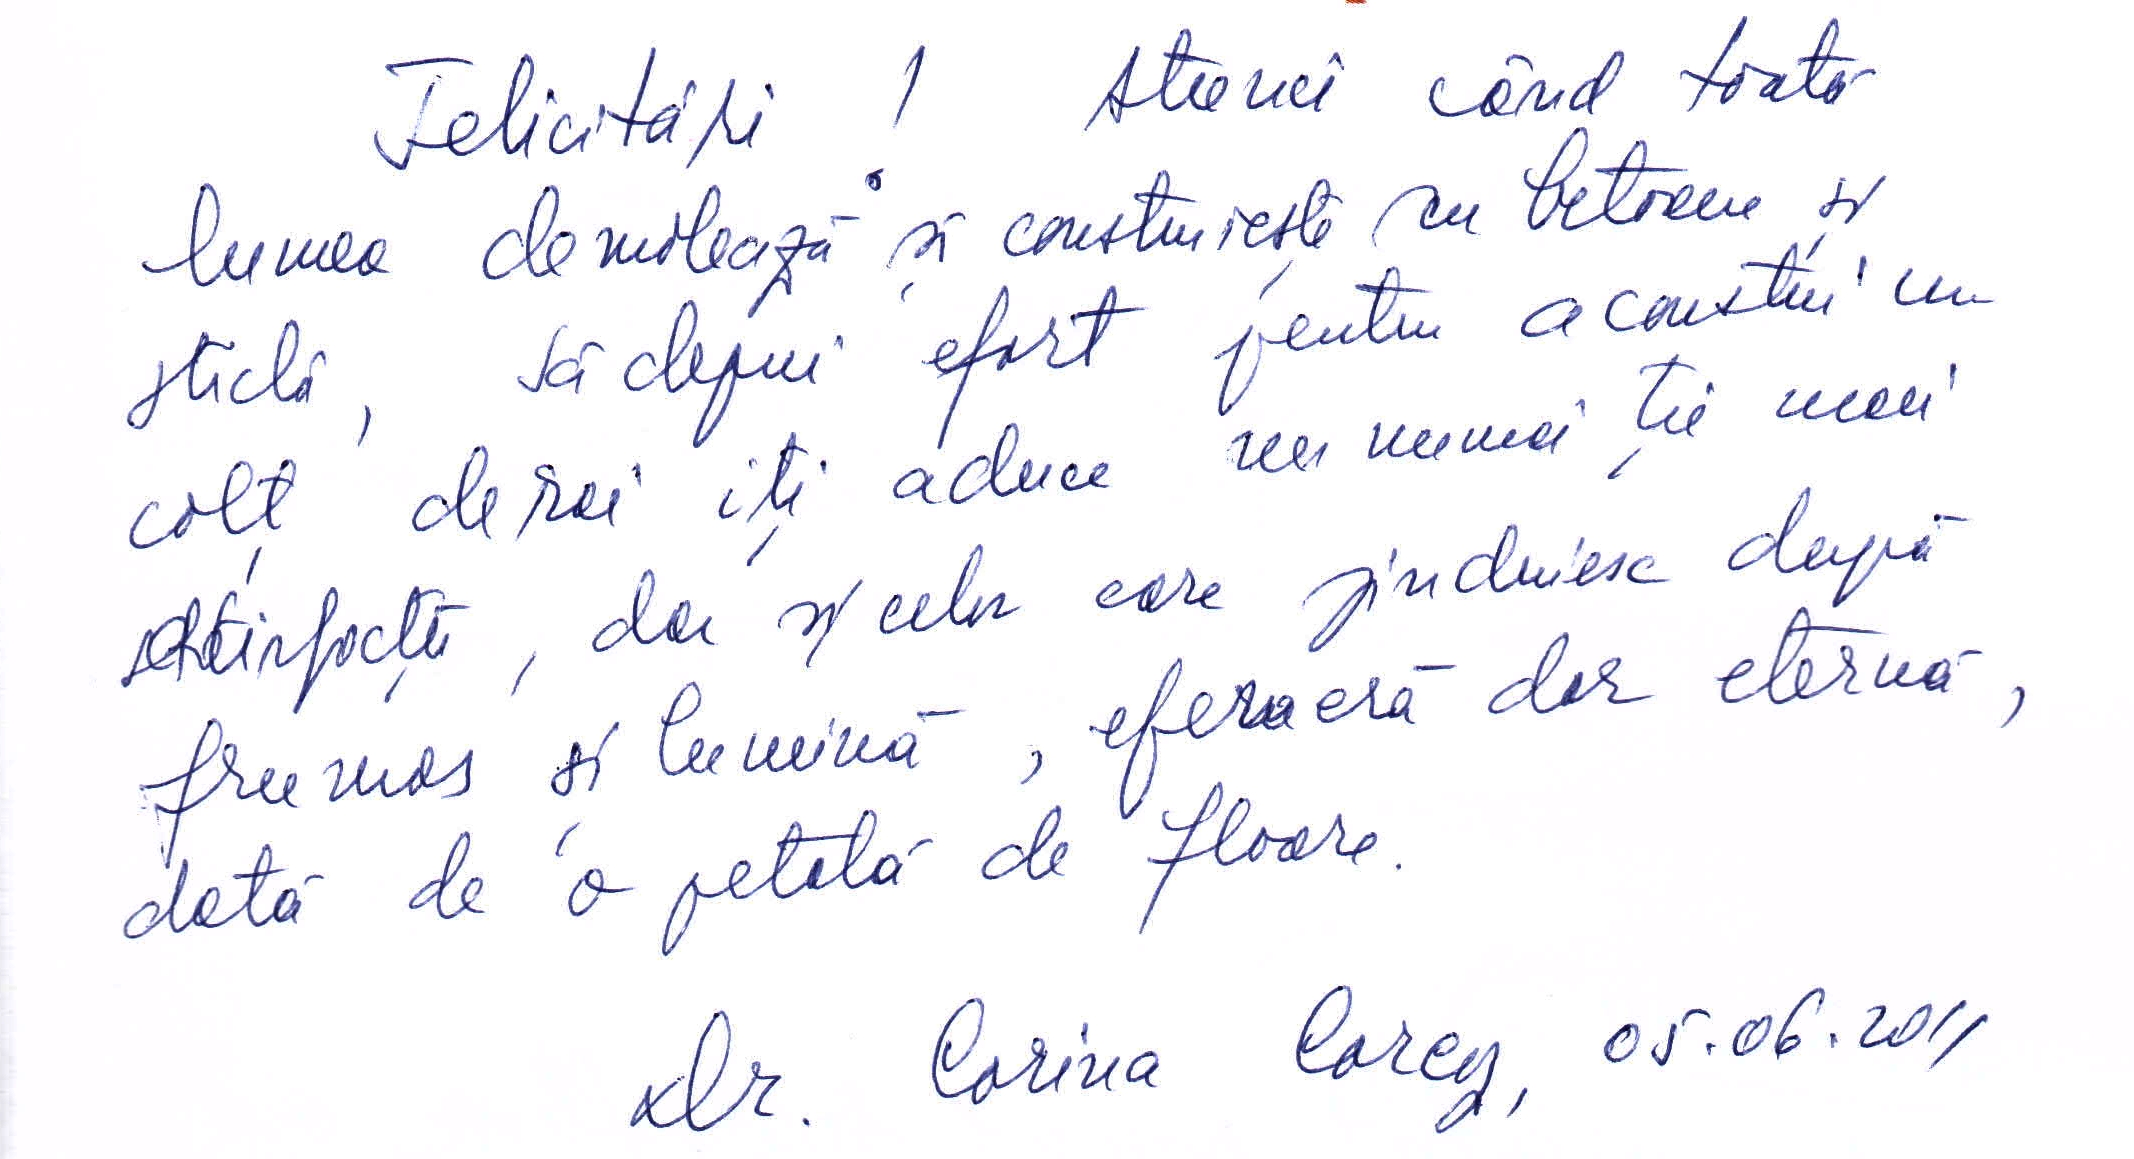 Felicitări ! Atunci când toată
lumea demolează și construiește cu betoane și
sticlă, să depui efort pentru a construi un
colț de rai îți aduce nu numai ție mari
satisfacții, dar și celor care jinduiesc după
frumos și lumină, efemeră dar eternă,
dată de o petală de floare.
Dr. Corina 05.06.2011